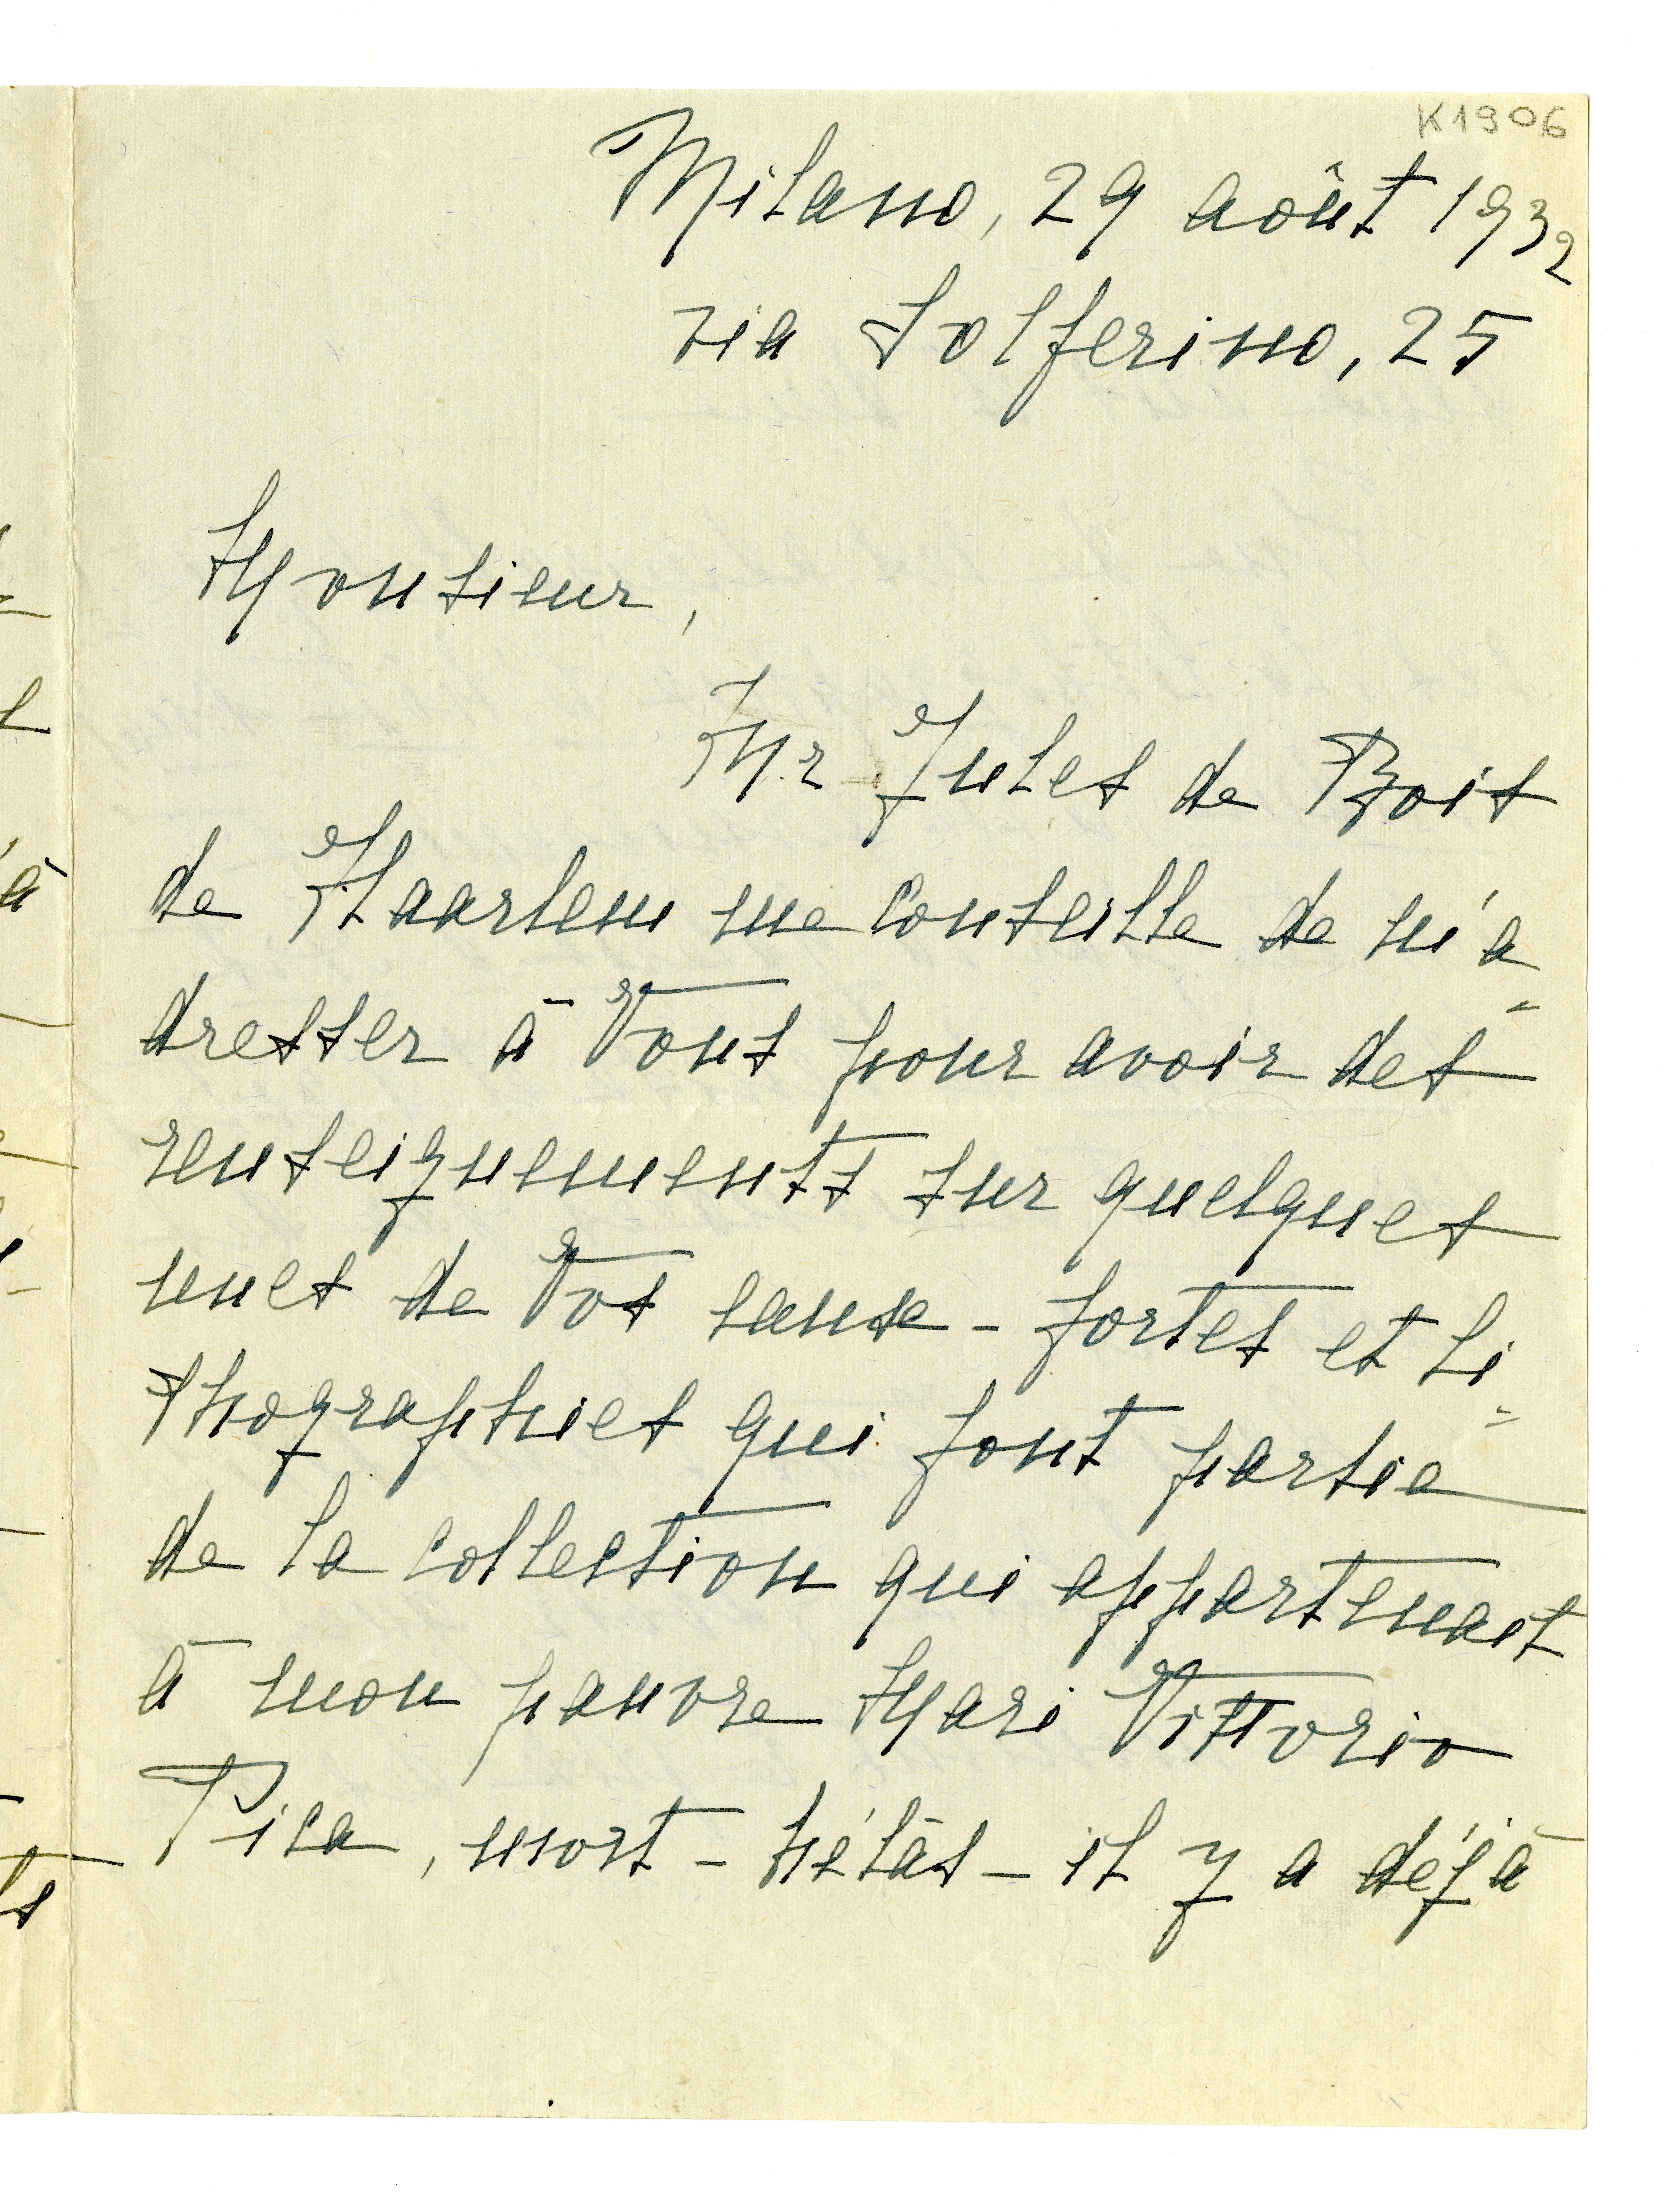 K1906
Milano, 29 août 1932
via Solferino, 25
Monsieur,
Mr Jules de Bois
de Haarlem me conseille de m'a
dresser à Vous pour avoir des
renseignements sur quelques
unes de Vos eaux-fortes et li=
thographies qui font partie
de la collection qui appartenait
à mon pauvre Mari Vittorio
Pica, mort - hélàs - il y a déjà